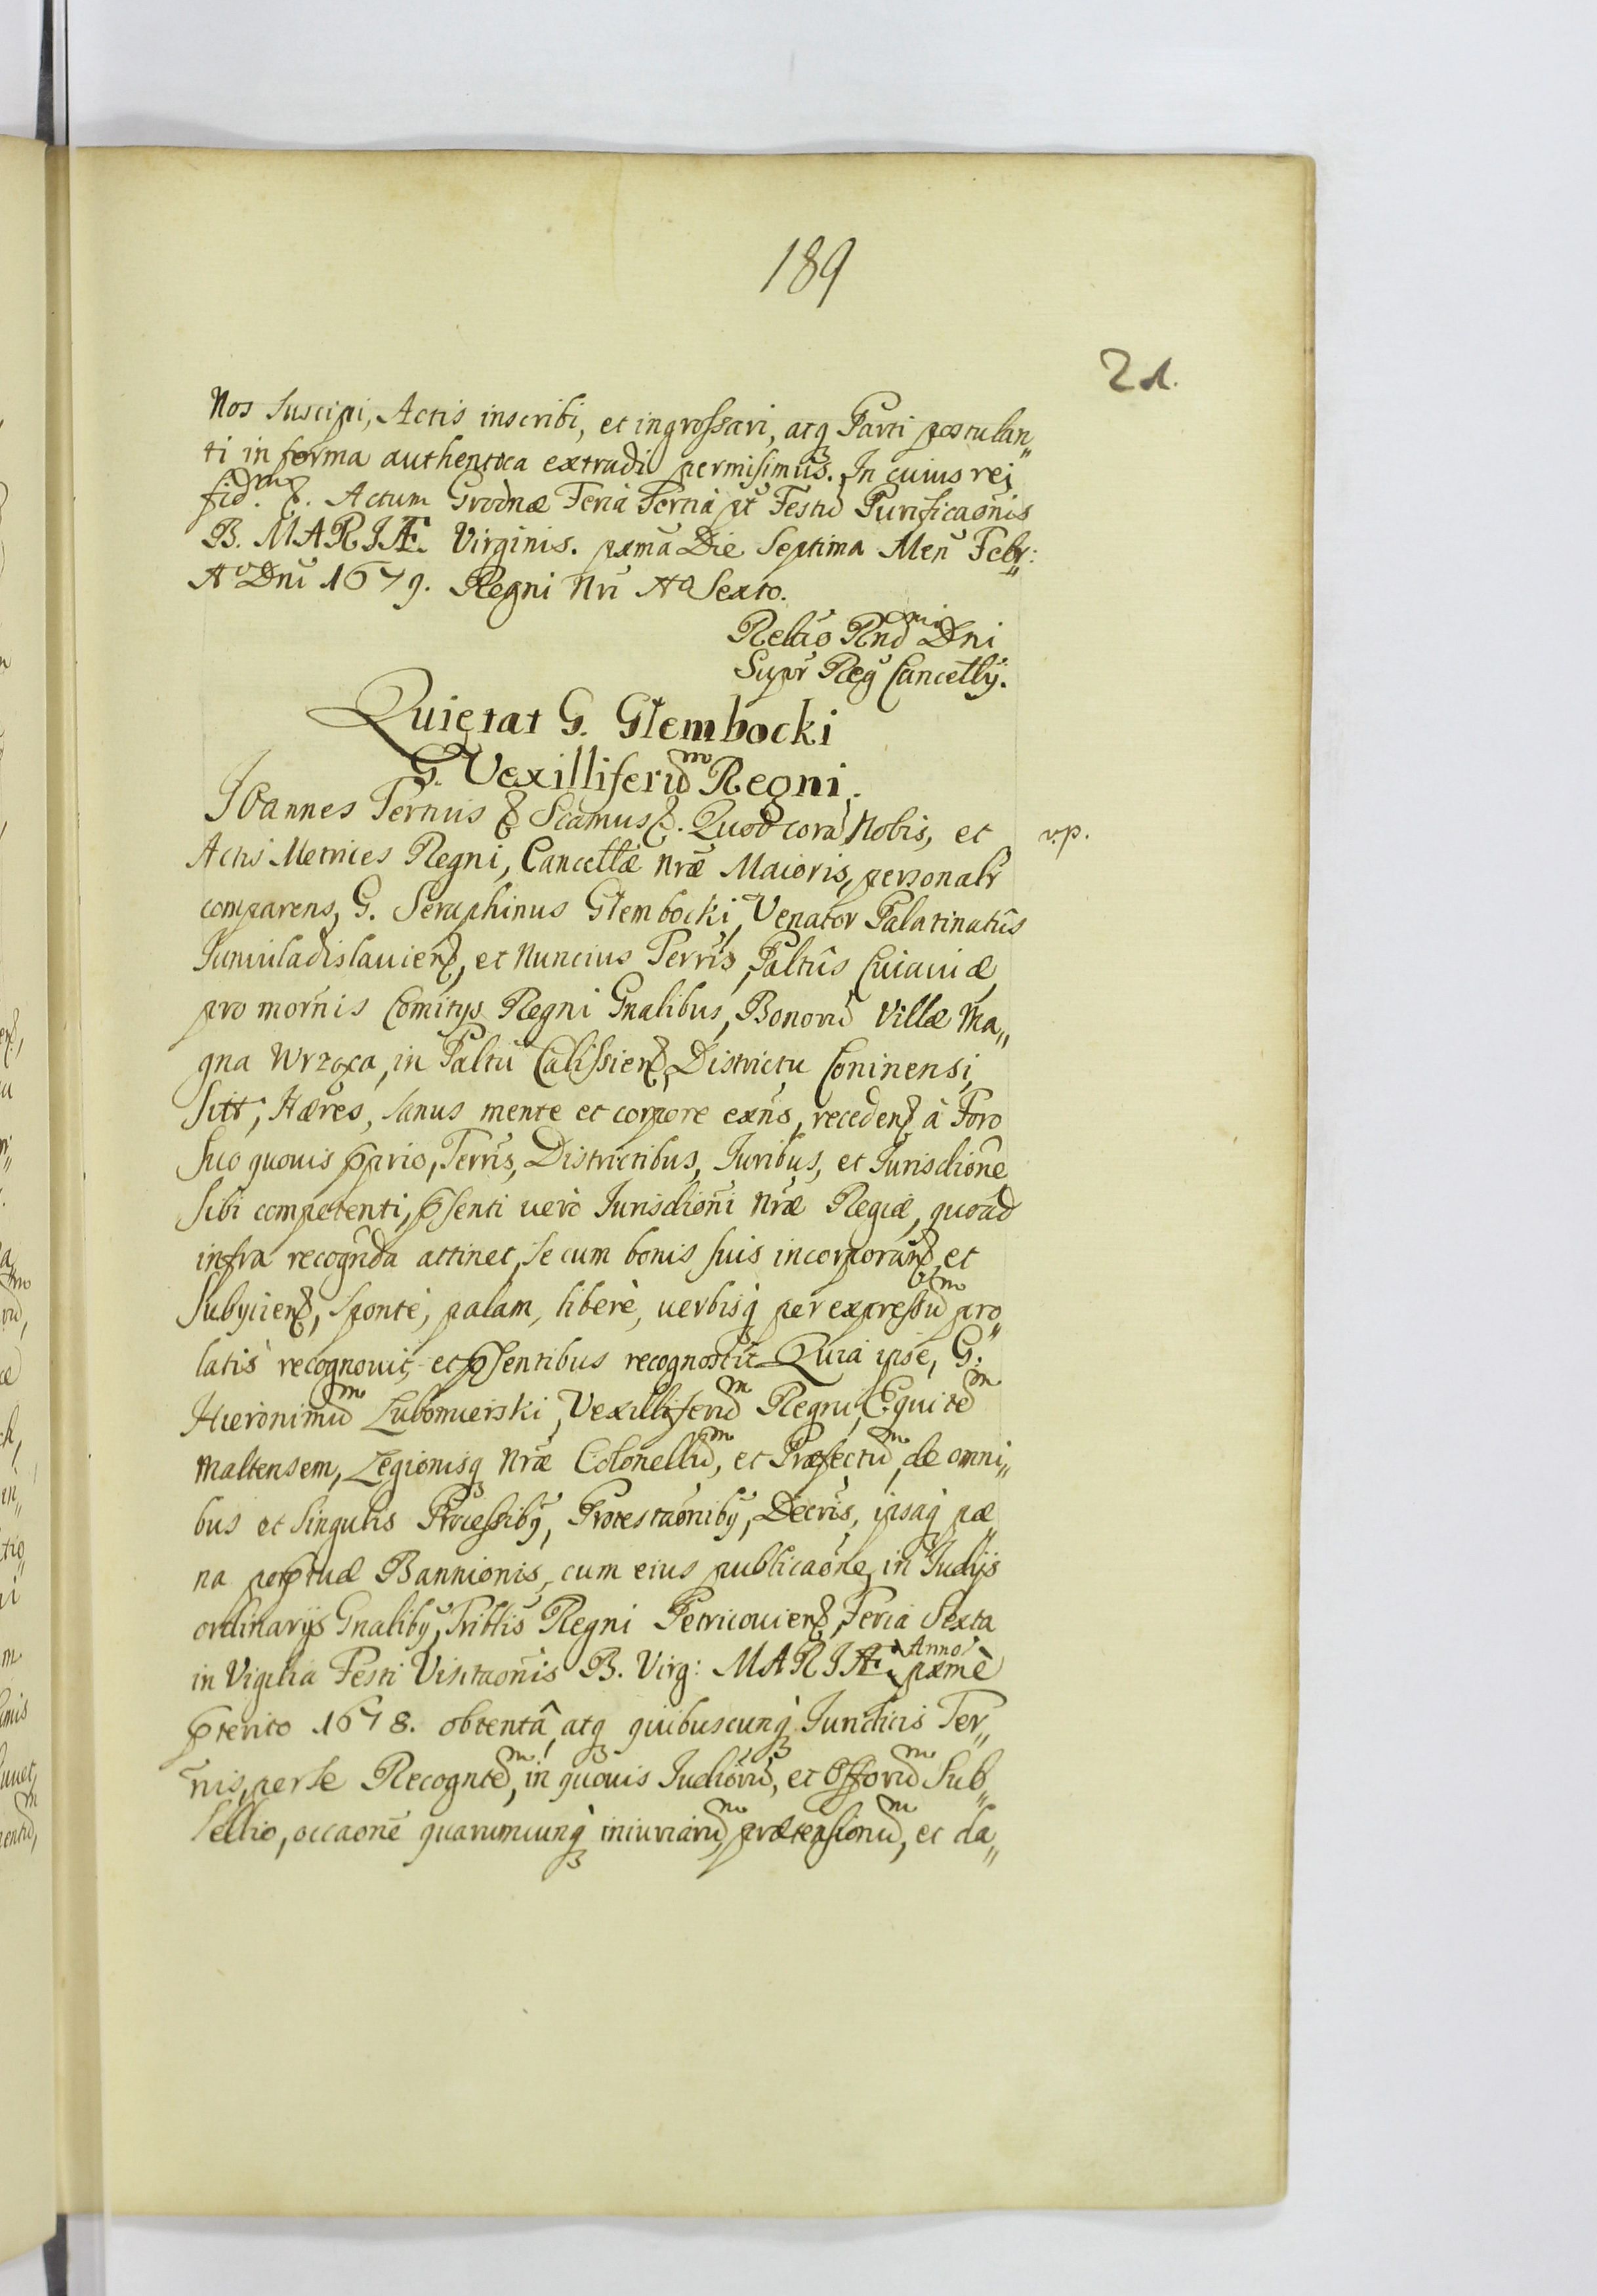 189
21.
Nos suscipi, Actis inscribi, et ingrossari, atq Parti postulan„
ti in forma authentica extradi permisimus. In cuius rei
fid.m &. Actum Grodnæ Feria Tertia pt Festũ Purificaõnis
B. MARIÆ Virginis. pxmã Die Septima Men̄ Febr:
Ao Dni 1679. Regni Nri Ao Sexto.
Relão Rndmi Dni
Supr Reg Cancellÿ.
Quietat G. Głembocki
G. Vexilliferũm Regni.
Joannes Tertius & Scãmus &. Quod corã Nobis, et
v.p.
Actis Metrices Regni, Cancellæ nræ Maioris, personalr
comparens, G. Seraphinus Głembocki, Venator Palatinatûs
Juniuladislauien̄, et Nuncius Terris Paltûs Cuiauiæ,
pro mornis Comitÿs Regni Gnalibus, Bonorũ Villæ Ma„
gna Wrząca, in Paltũ Calissien̄, Districtu Coninensi,
sitt, Hæres, sanus mente et corpore exñs, receden̄ â Foro
suo quouis pprio, Terris, Districtibus, Juribus, et Jurisdiõne
sibi competenti, pñsenti uerò Jurisdiõni nræ Regiæ, quoad
infra recognda attinet, se cum bonis suis incorporan̄, et
Subÿcien̄, sponte, palam, liberè, uerbisq per expressũm pro„
latis recognouit, et pñsentibus recognoscit Quia ipse, G.
Hieronimũm Lubomierski, Vexilliferũm Regni, Equitem
Maltensem, Legionisq nræ Colonellũm, et Præfectũm, de omni„
bus et singulis Processibÿ, Protestaõnibÿ, Decris, ipsaq pæ
na perptuæ Bannionis, cum eius publicaõne, in Judÿs
ordinarÿs Gnalibÿ, Tribllis Regni Petricouien̄, Feria Sexta
in Vigilia Festi Visitaõnis B. Virg: MARIÆ, Anno pxmè
pterito 1678. obtentâ, atq quibuscunq Juridicis Ter„
nis, per se Recogntem, in quouis Judiorũ, et Offorũm Sub„
sellio, occaõne quarumcunq iniuriarũm, prætensionũm, et da„